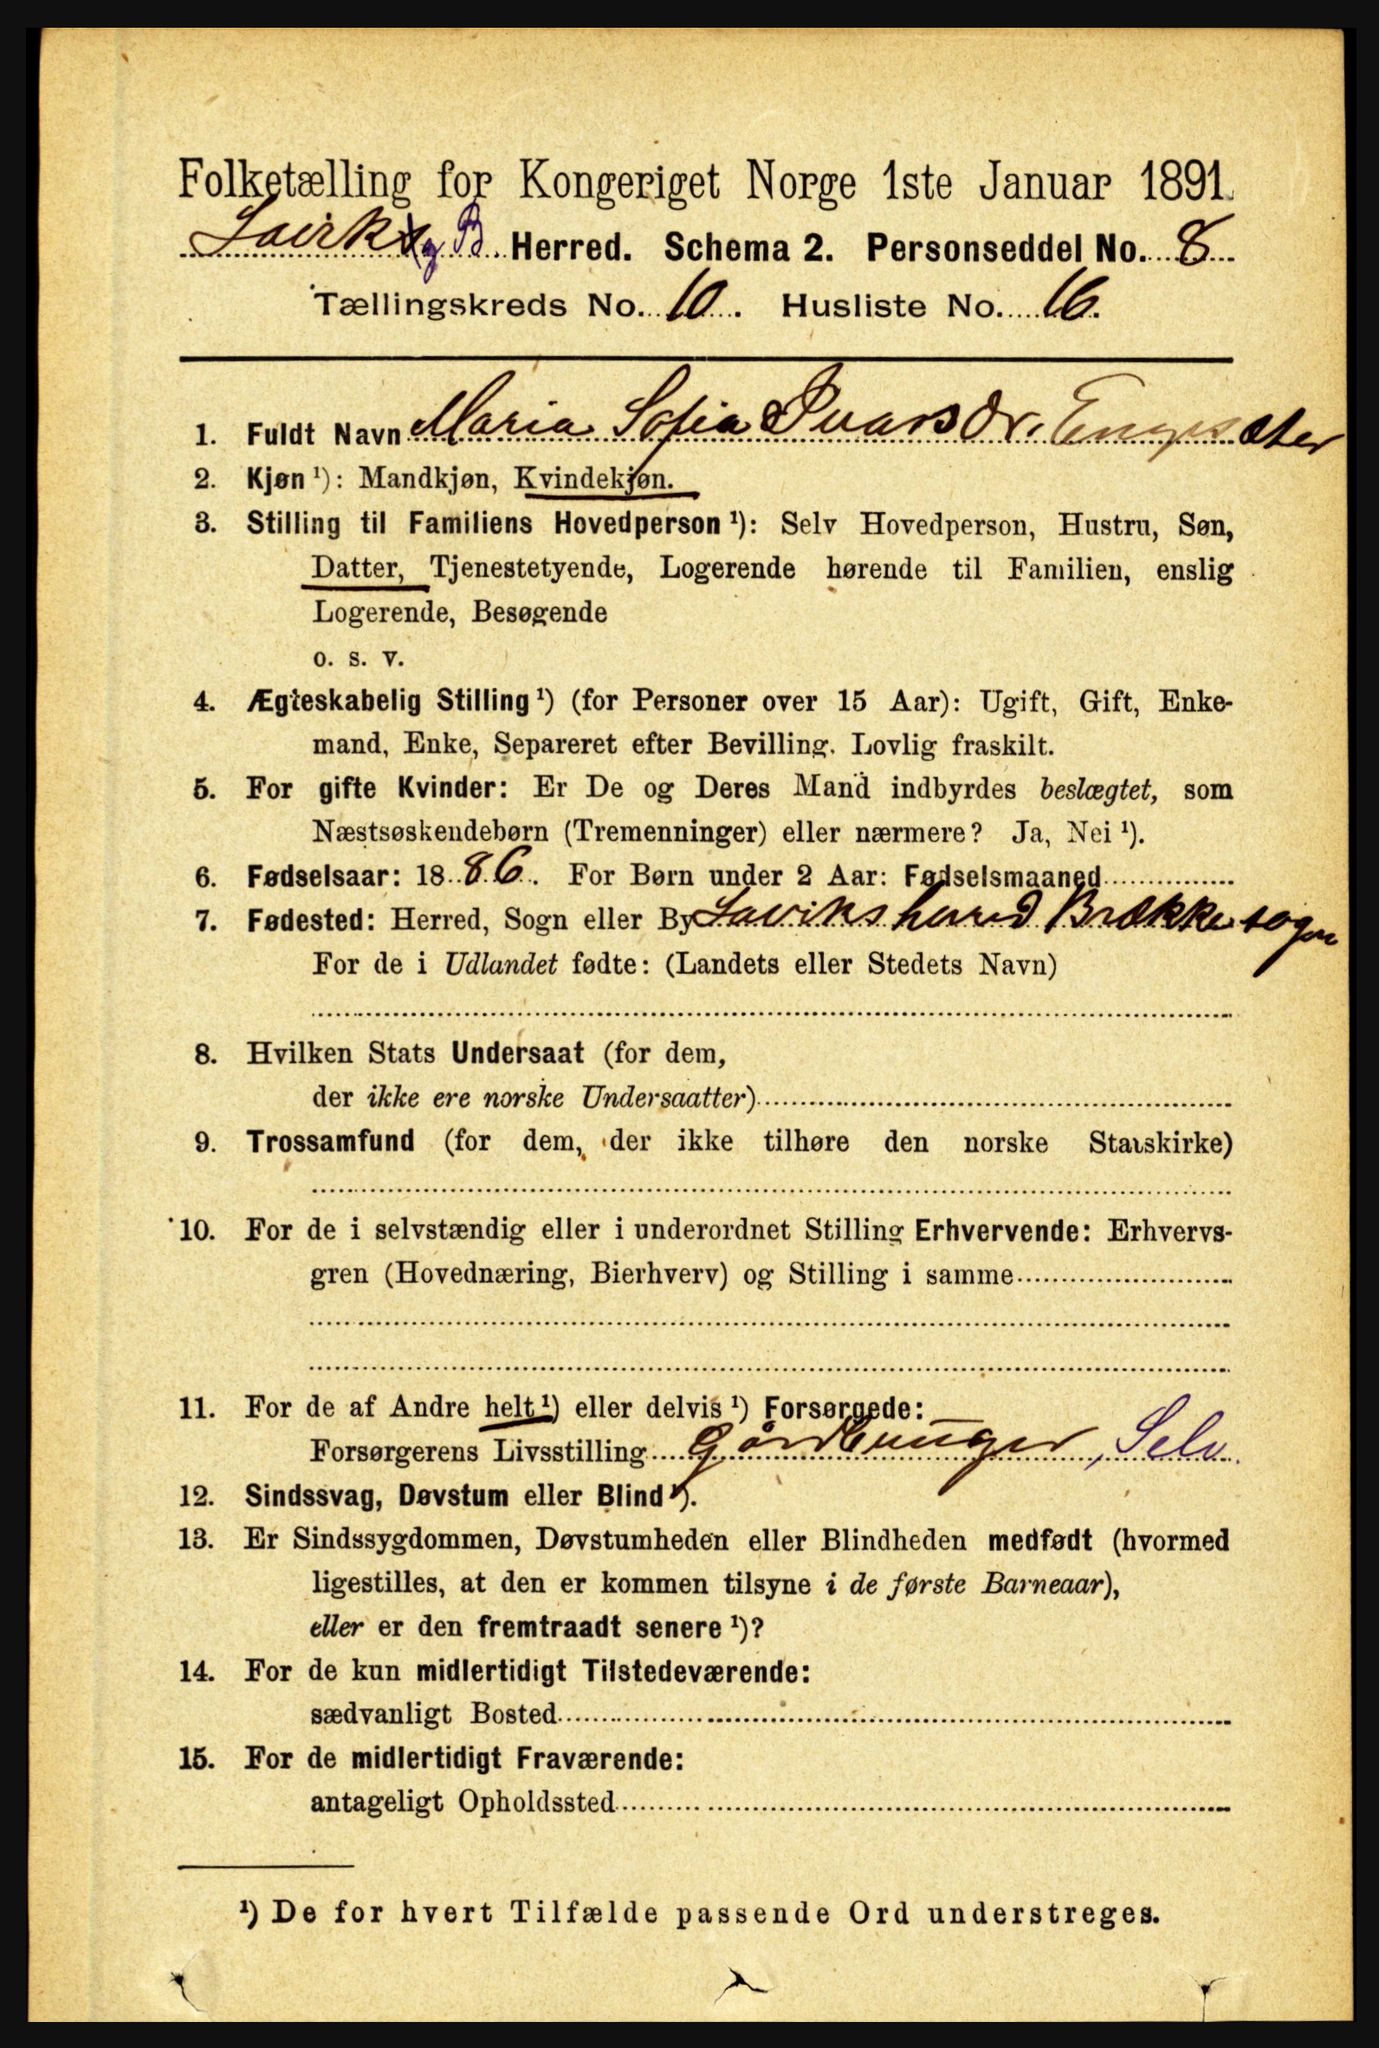 Folketælling for Kongeriget Norge 1ste Januar 1891.
Lavik og B. Herred. Schema 2. Personseddel No. 8
Tællingskreds No. 10. Husliste No. 16.
1. Fuldt Navn Maria Sofia Ivarsdr. Engesæter
2. Kjøn ¹): Mandkjøn, Kvindekjøn.
3. Stilling til Familiens Hovedperson ¹): Selv Hovedperson, Hustru, Søn,
Datter, Tjenestetyende, Logerende hørende til Familien, enslig
Logerende, Besøgende
o. s. v.
4. Ægteskabelig Stilling ¹) (for Personer over 15 Aar): Ugift, Gift, Enke-
mand, Enke, Separeret efter Bevilling. Lovlig fraskilt.
5. For gifte Kvinder: Er De og Deres Mand indbyrdes beslægtet, som
Næstsøskendebørn (Tremenninger) eller nærmere? Ja, Nei ¹).
6. Fødselsaar: 1886. For Børn under 2 Aar: Fødselsmaaned
7. Fødested: Herred, Sogn eller By Laviks herred Brække sogn
For de i Udlandet fødte: (Landets eller Stedets Navn)
8. Hvilken Stats Undersaat (for dem,
der ikke ere norske Undersaatter)
9. Trossamfund (for dem, der ikke tilhøre den norske Statskirke)
10. For de i selvstændig eller i underordnet Stilling Erhvervende: Erhvervs-
gren (Hovednæring, Bierhverv) og Stilling i samme
11. For de af Andre helt ¹) eller delvis ¹) Forsørgede:
Forsørgerens Livsstilling Gårdbruger, Selv.
12. Sindssvag, Døvstum eller Blind ¹).
13. Er Sindssygdommen, Døvstumheden eller Blindheden medfødt (hvormed
ligestilles, at den er kommen tilsyne i de første Barneaar),
eller er den fremtraadt senere ¹)?
14. For de kun midlertidigt Tilstedeværende:
sædvanligt Bosted
15. For de midlertidigt Fraværende:
antageligt Opholdssted
¹) De for hvert Tilfælde passende Ord understreges.